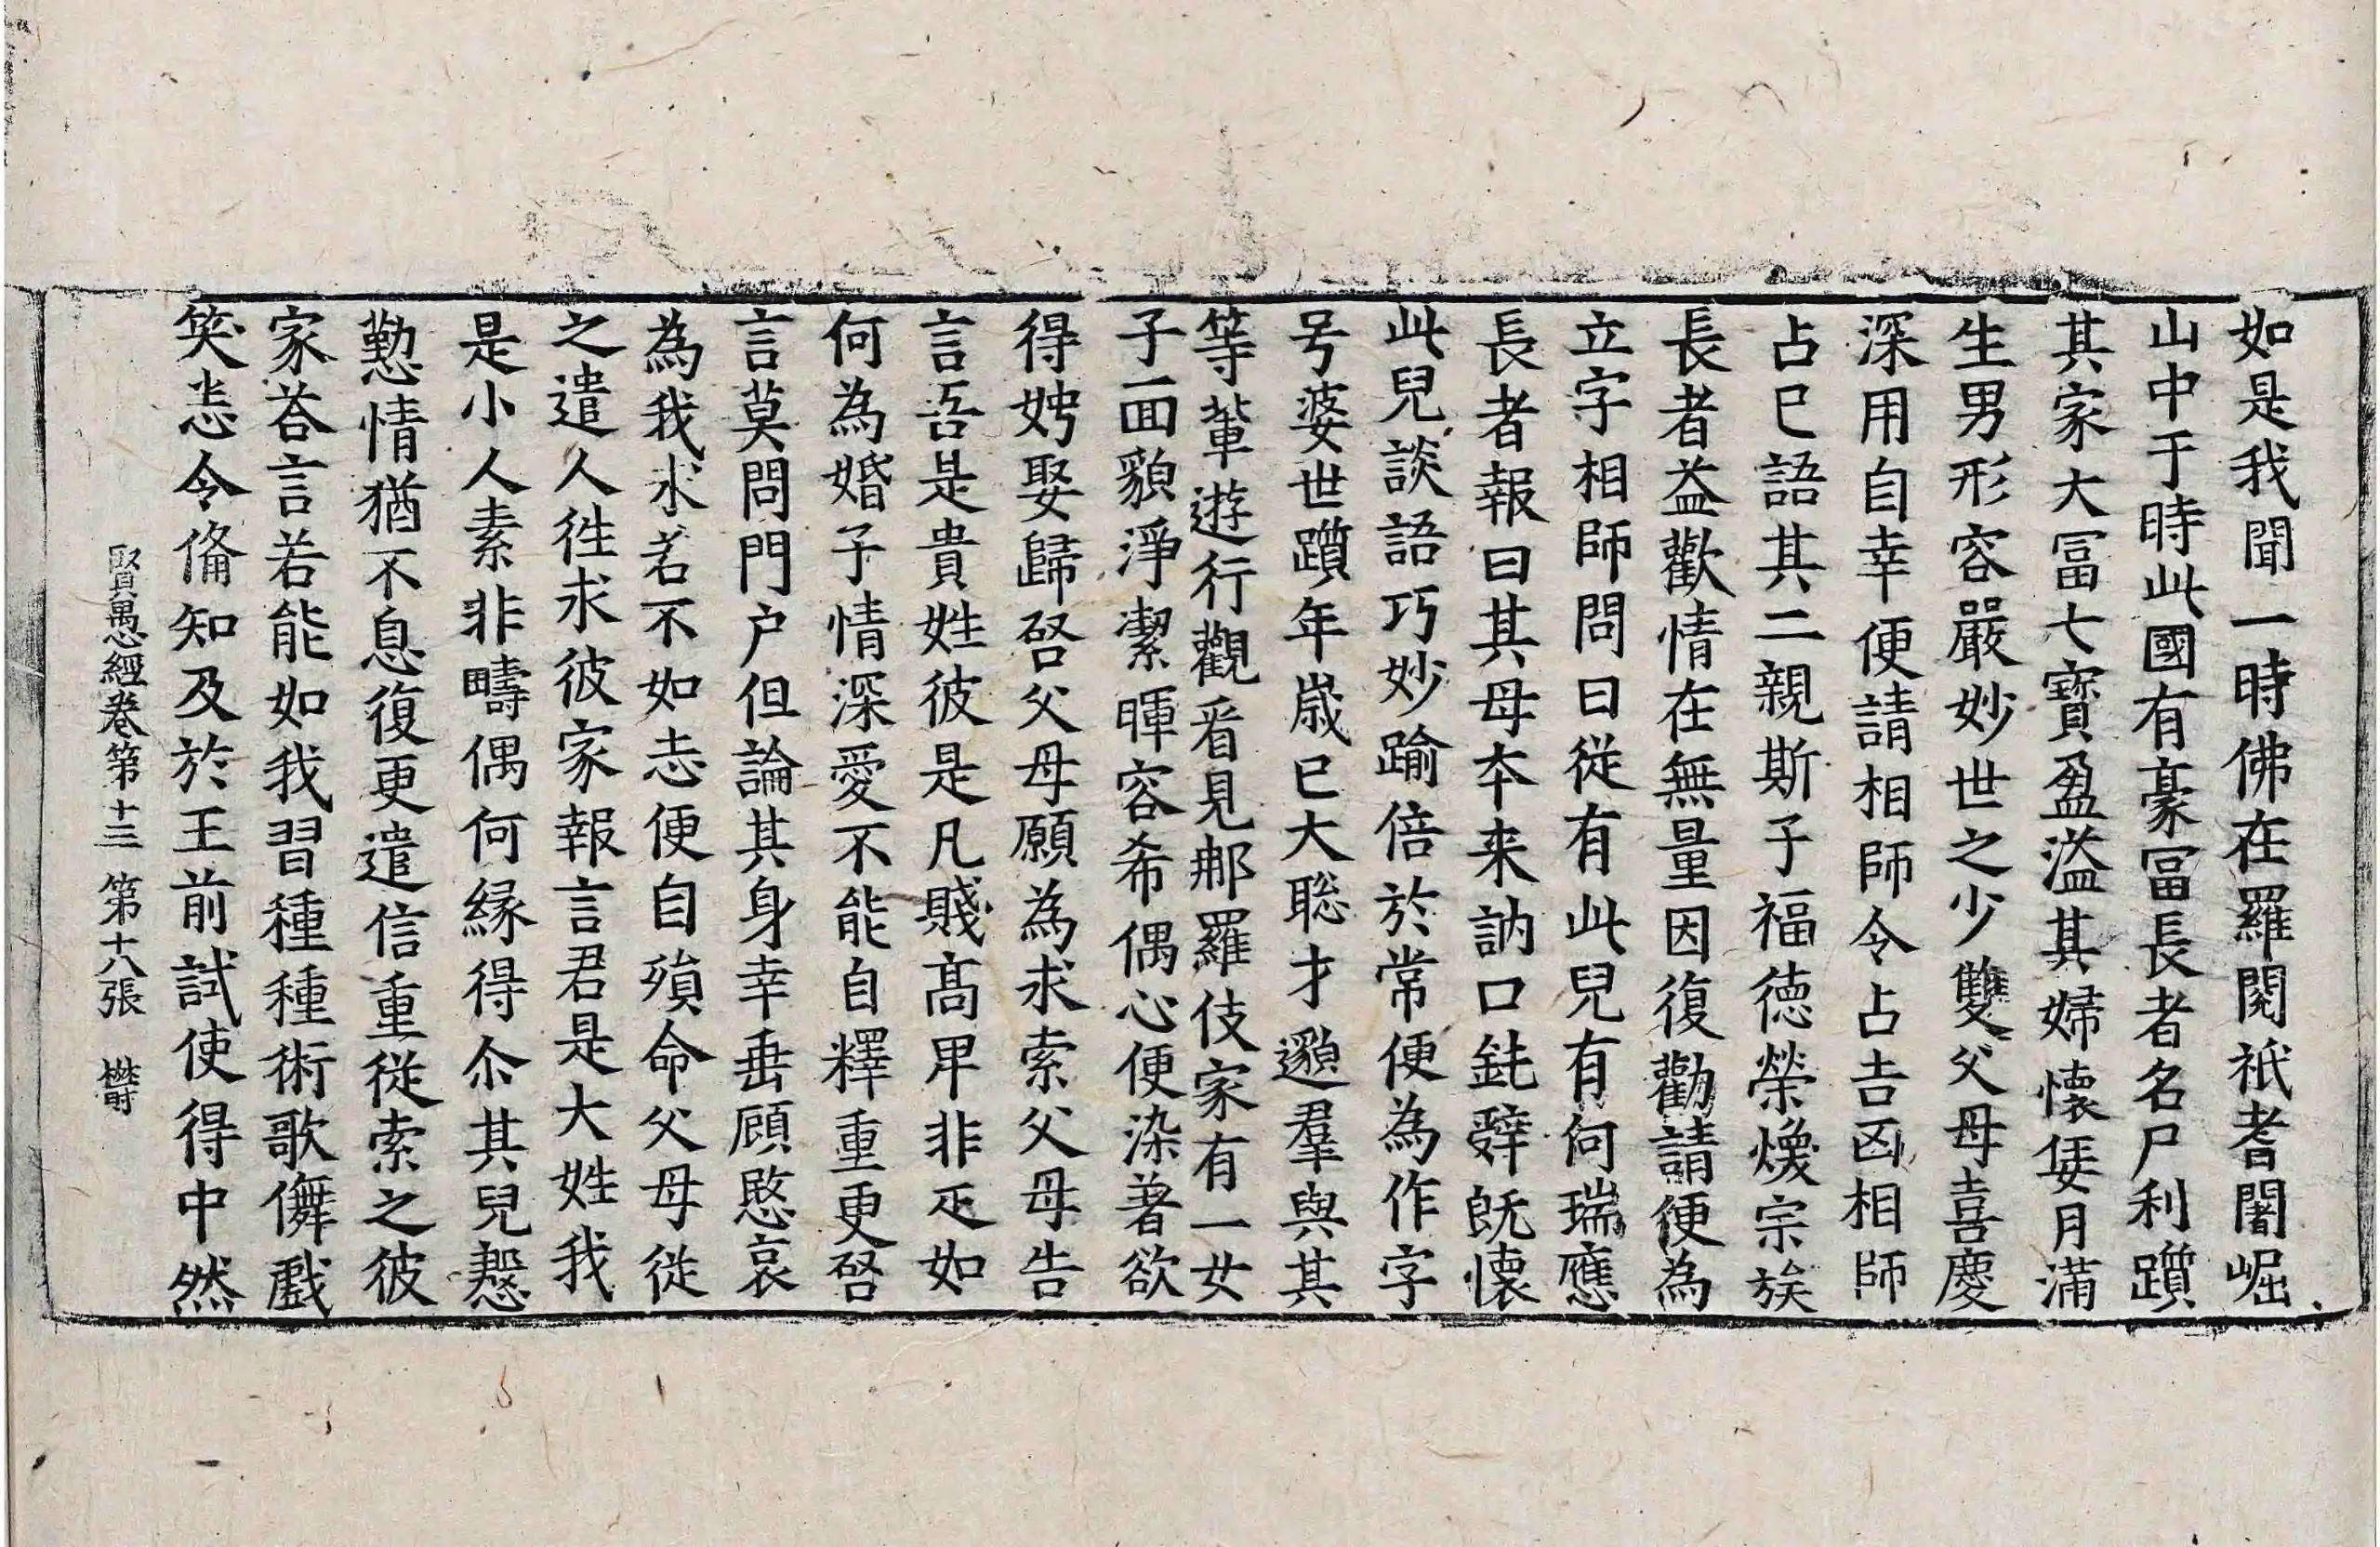 如是我聞一時佛在羅閱祇耆闍崛
山中于時此國有豪冨長者名尸利躓
其家大冨七寶盈溢其婦懷妊月滿
生男形容嚴妙世之少雙父母喜慶
深用自幸便請相師令占吉凶相師
占已語其二親斯子福德榮煥宗族
長者益歡情在無量因復勸請便為
立字相師問曰從有此兒有何瑞應
長者報曰其母夲来訥口鈍辝旣懷
此兒談語巧妙踰倍於常便為作字
号婆世躓年歲已大聡才邈羣與其
等輩遊行觀看見那羅伎家有一女
子面貌淨潔暉容希偶心便染著欲
得娉娶歸啓父母願為求索父母告
言吾是貴姓彼是凡賤髙卑非疋如
何為婚子情深愛不能自釋重更啓
言莫問門户但論其身幸垂顧愍哀
為我求若不如志便自殞命父母從
之遣人徃求彼家報言君是大姓我
是小人素非疇偶何緣得尒其兒慇
懃情猶不息復更遣信重從索之彼
家荅言若能如我習種種術歌儛戲
笑悉令俻知及於王前試使得中然
賢愚經卷第十三 第十八張 欝